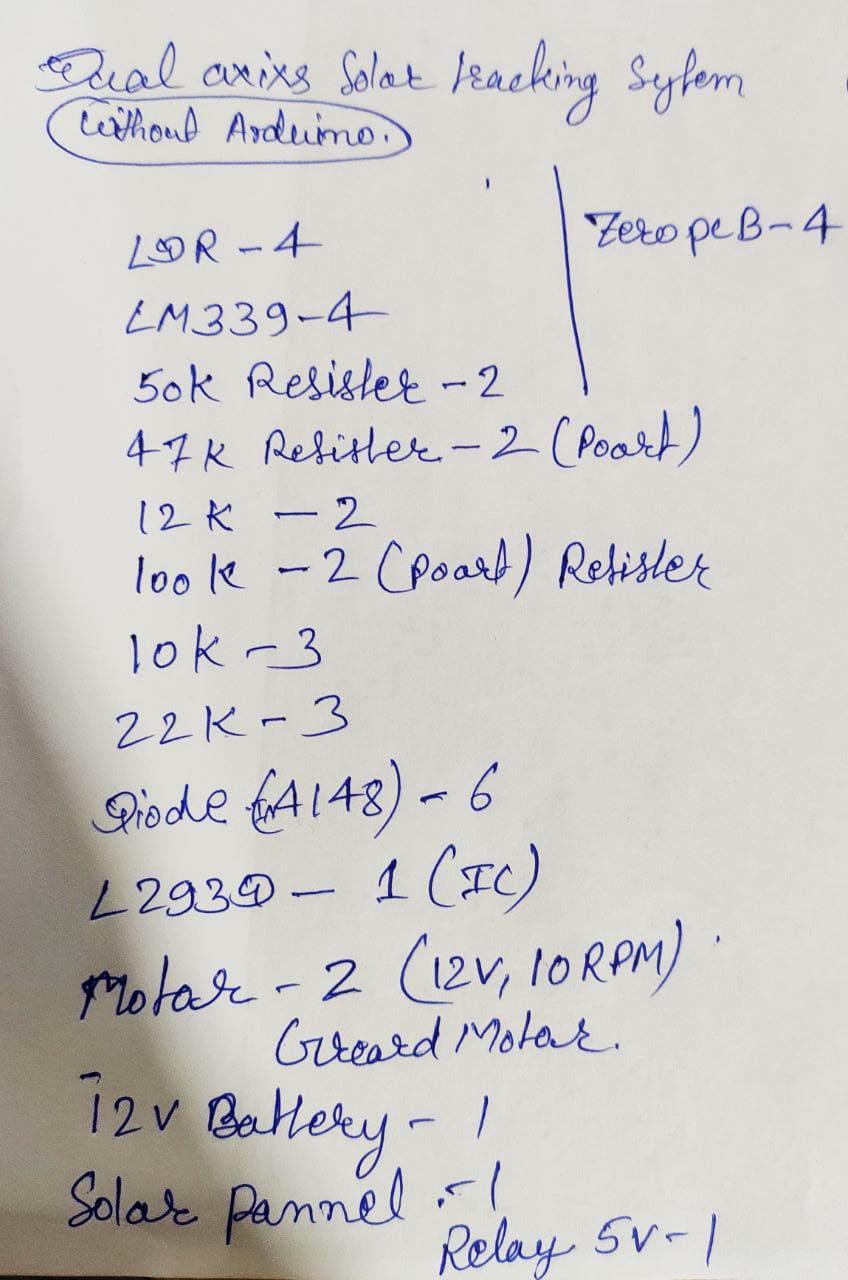 Dual axixs Solar tracking Sytem
Without Arduino.
Zero pcB - 4
LDR - 4
LM339 - 4
50k Resister - 2
47K Resister - 2 (Poart)
12K - 2
100k - 2 (Poart) Resister
10K - 3
22K - 3
Diode (4148) - 6
L293D - 1 (IC)
Motar - 2 (12V, 10RPM)
Greard Motar.
12V Battery - 1
Solar Pannel - 1
Relay 5V - 1